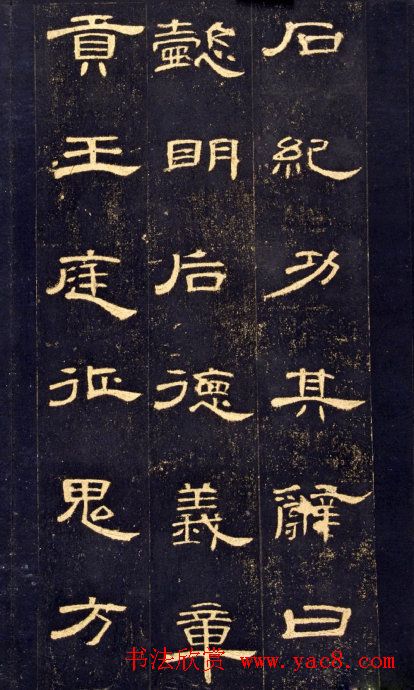 石紀功其辭曰
懿明后德義章
貢王庭征鬼方
书法欣赏 www.yac8.com